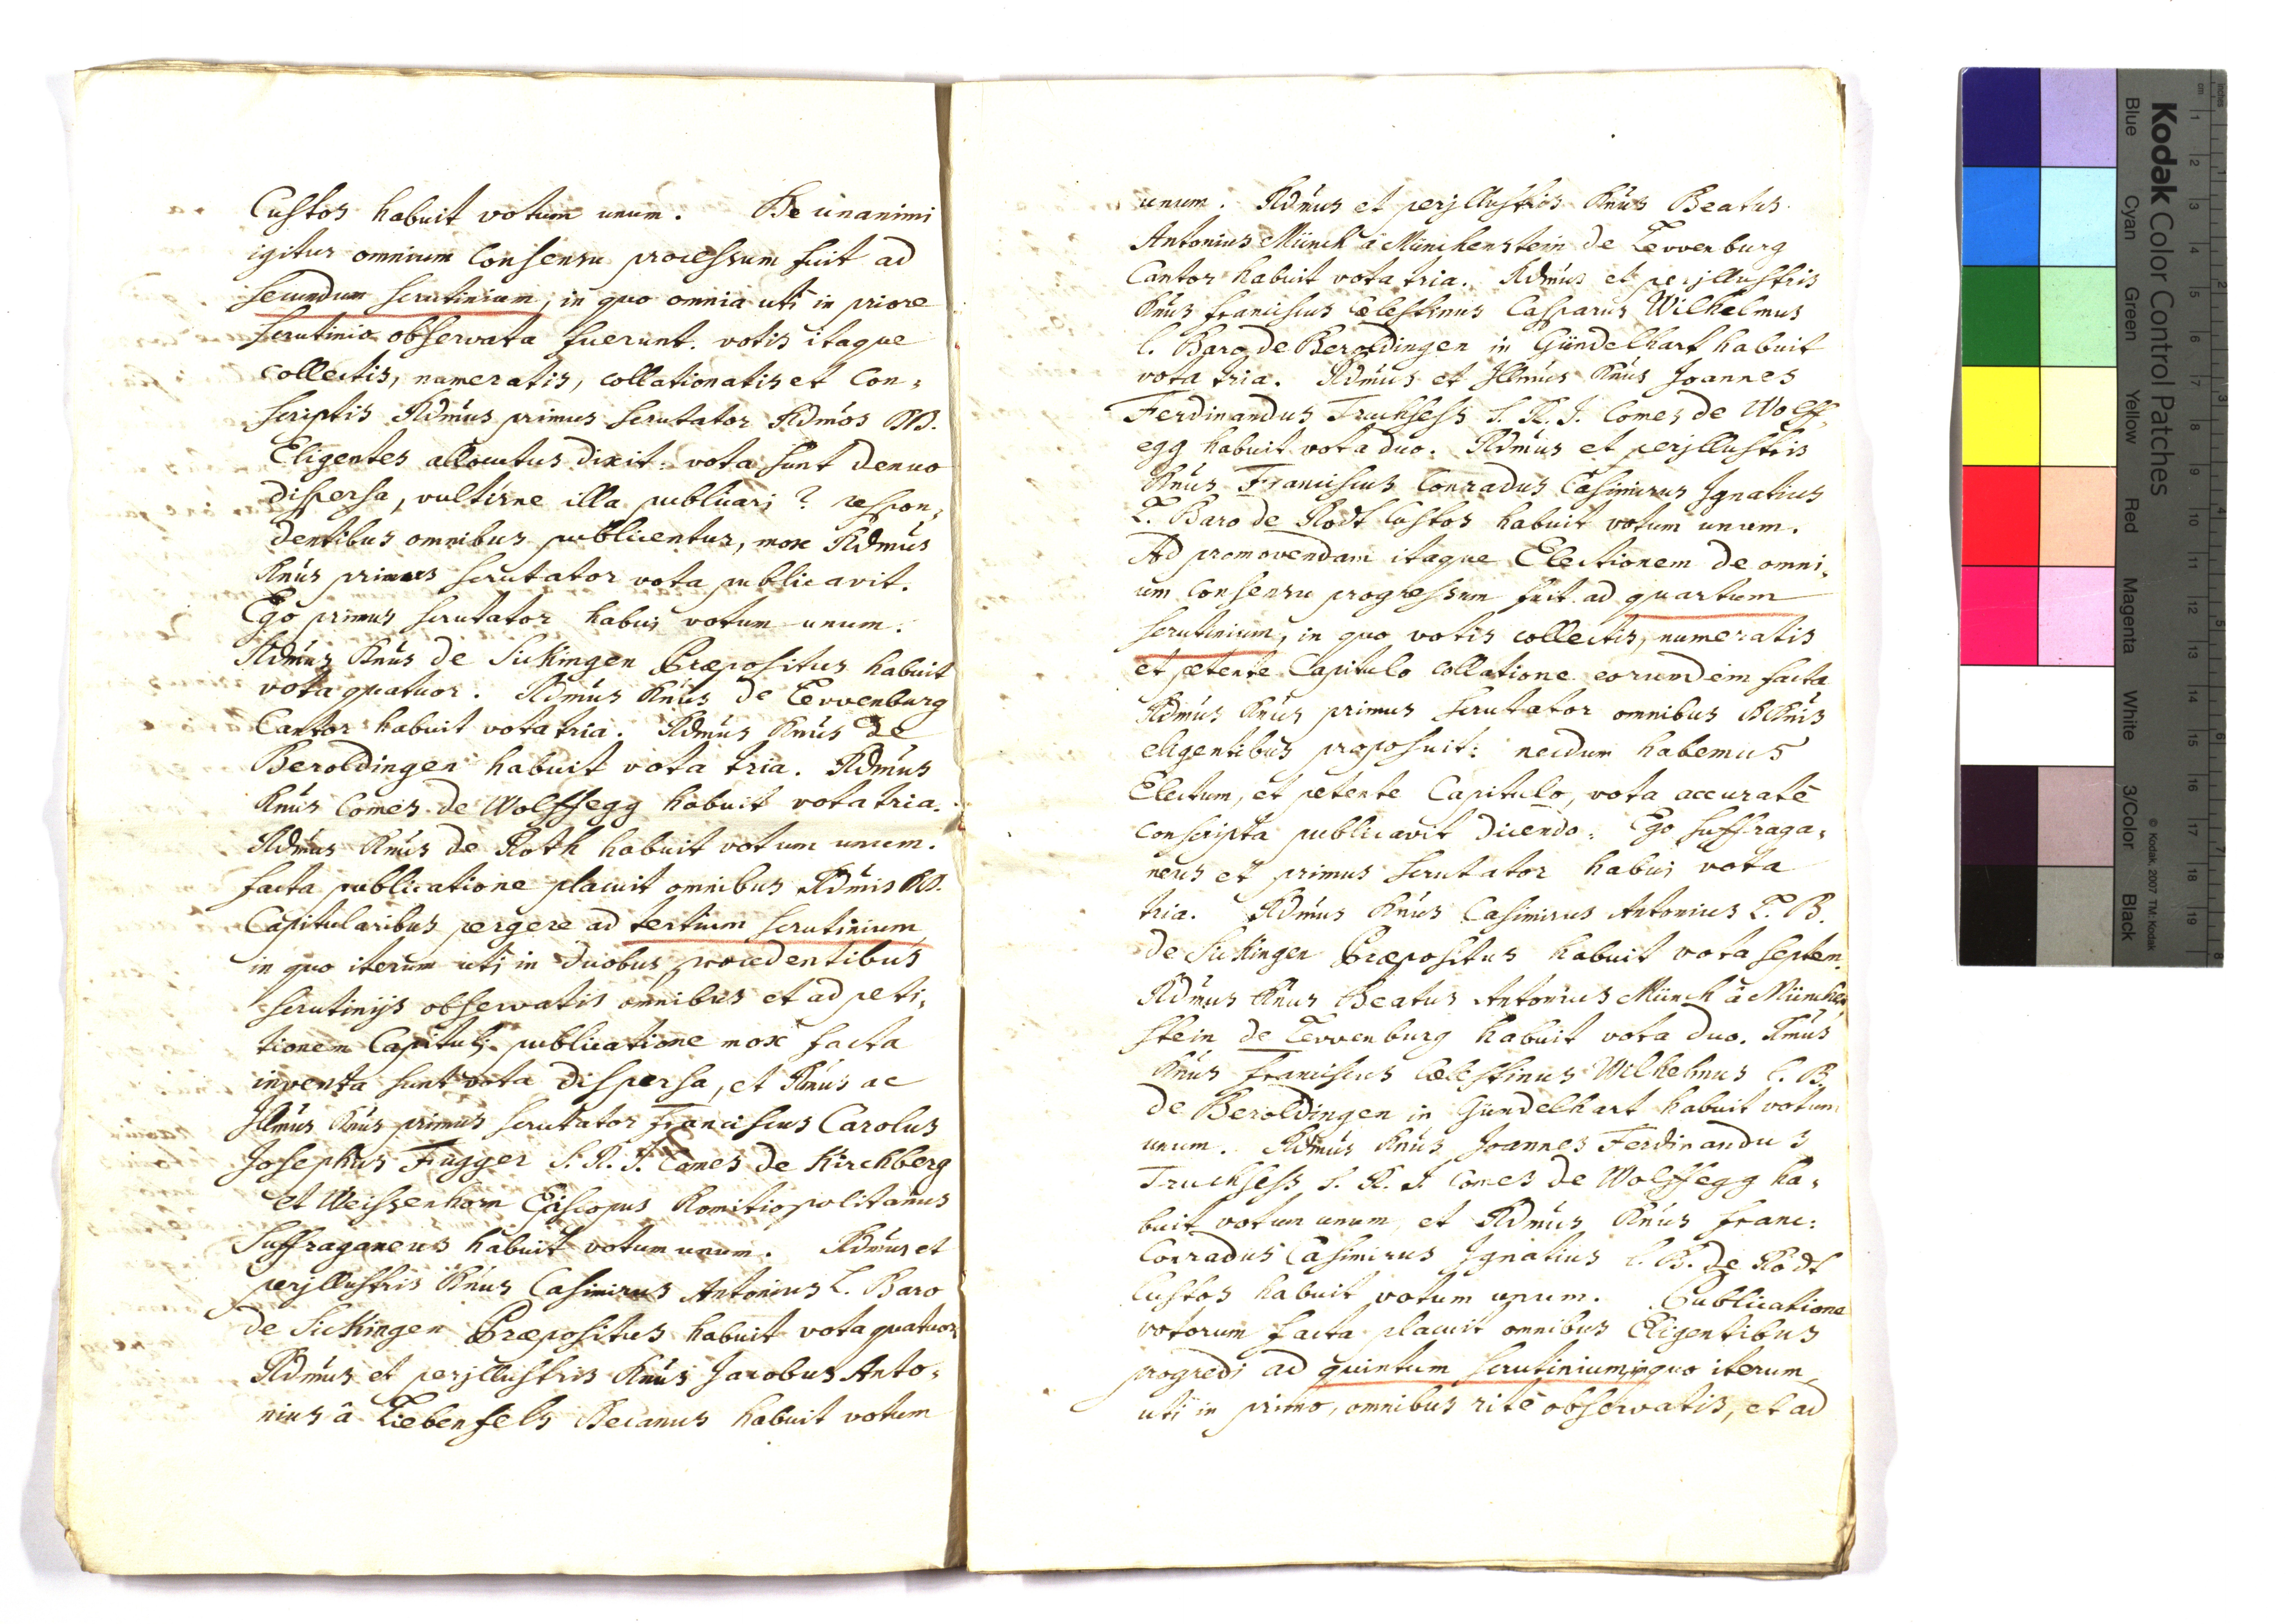 Custos habuit votum unum. De unanimi
igitur omnium Consensu processum fuit ad
secundum scrutinium, in quo omnia uti in priore
scrutinio observata fuerunt. votis itaque
collectis, numeratis, collationatis et Con,
scriptis Rdmus primus scrutator Rdmos DD.
Eligentes allocutus dixit: vota sunt denuo
dispersa, vultisne illa publicari? respon,
dentibus omnibus publicentur, mox Rdmus
Dnus primus scrutator vota publicavit.
Ego primus scrutator habui votum unum.
Rdmus Dnus de Sickingen Præpositus habuit
vota quatuor. Rdmus Dnus de Levvenburg
Cantor habuit vota tria. Rdmus Dnus de
Beroldingen habuit vota tria. Rdmus
Dnus Comes de Wolffegg habuit vota tria.
Rdmus Dnus de Roth habuit votum unum.
facta publicatione placuit omnibus Rdmis DD.
Capitularibus pergere ad tertium scrutinium
in quo iterum uti in duobus procedentibus
scrutinijs observatis omnibus et ad peti,
tionem Capituli publicatione mox facta
inventa sunt vota dispersa, et Rmus ac
Jllmus Dnus primus scrutator franciscus Carolus
Josephus Fugger S. R. J. Comes de Kirchberg
et Weissenhorn Episcopus Domitiopolitanus
Suffraganeus habuit votum unum. Rdmus et
perjllustris Dnus Casimirus Antonius L. Baro
de Sickingen Præpositus habuit vota quatuor.
Rdmus et perjllustris Dnus Jacobus Anto,
nius â Liebenfels Decanus habuit votum
unum. Rdmus et perjllustris Dnus Beatus
Antonius Münch â Münchenstein de Levvenburg
Cantor habuit vota tria. Rdmus et perjllustris
Dnus franciscus Cælestinus Casparus Wilhelmus
L. Baro de Beroldingen in Gündelhart habuit
vota tria. Rdmus et Jllmus Dnus Joannes
Ferdinandus Truchsess S. R. J. Comes de Wolff,
egg habuit vota duo. Rdmus et perjllustris
Dnus Franciscus Conradus Casimirus Jgnatius
L. Baro de Rodt Custos habuit votum unum.
Ad promovendam itaque Electionem de omni,
um Consensu progressum fuit ad quartum
scrutinium, in quo votis collectis, numeratis
et petente Capitulo collatione eorundem facta
Rdmus Dnus primus scrutator omnibus DDnis
eligentibus proposuit: necdum habemus
Electum, et petente Capitulo, vota accuratè
conscripta publicavit dicendo: Ego suffraga,
neus et primus scrutator habui vota
tria. Rdmus Dnus Casimirus Antonius L. B.
de Sickingen Præpositus habuit vota septem.
Rdmus Dnus Beatus Antonius Münch â München
stein de Levvenburg habuit vota duo. Rmus
Dnus franciscus Cælestinus Wilhelmus L. B.
de Beroldingen in Gündelhart habuit votum
unum. Rdmus Dnus Joannes Ferdinandus
Truchsess S. R. J. Comes de Wolffegg ha,
buit votum unum et Rdmus Dnus franc:
Conradus Casimirus Jgnatius L. B. de Rodt
Custos habuit votum unum. Publicatione
votorum facta placuit omnibus Eligentibus
progredi ad quintum scrutinium, in quo iterum
uti in primo, omnibus ritè observatis, et ad
Kodak Color Control Patches
© Kodak, 2007 TM: Kodak
Blue Cyan Green Yellow Red Magenta White 3/Color Black
cm 1 2 3 4 5 6 7 8 9 10 11 12 13 14 15 16 17 18 19
Inches 1 2 3 4 5 6 7 8